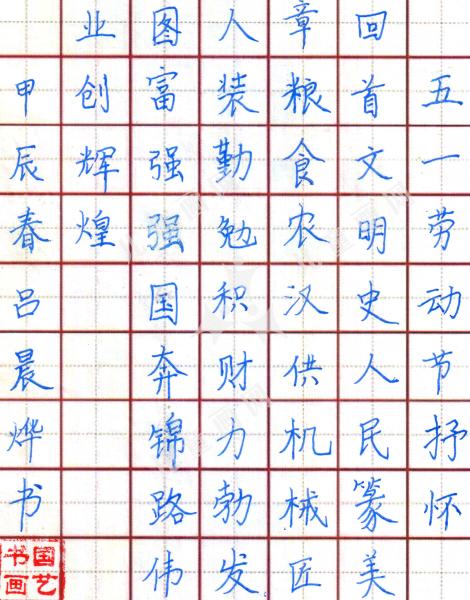 五一劳动节抒怀
回首文明史人民篆美
章粮食农汉供机械匠
人装勤勉积财力勃发
图富强强国奔锦路伟
业创辉煌
甲辰春吕晨烨书
国艺书画